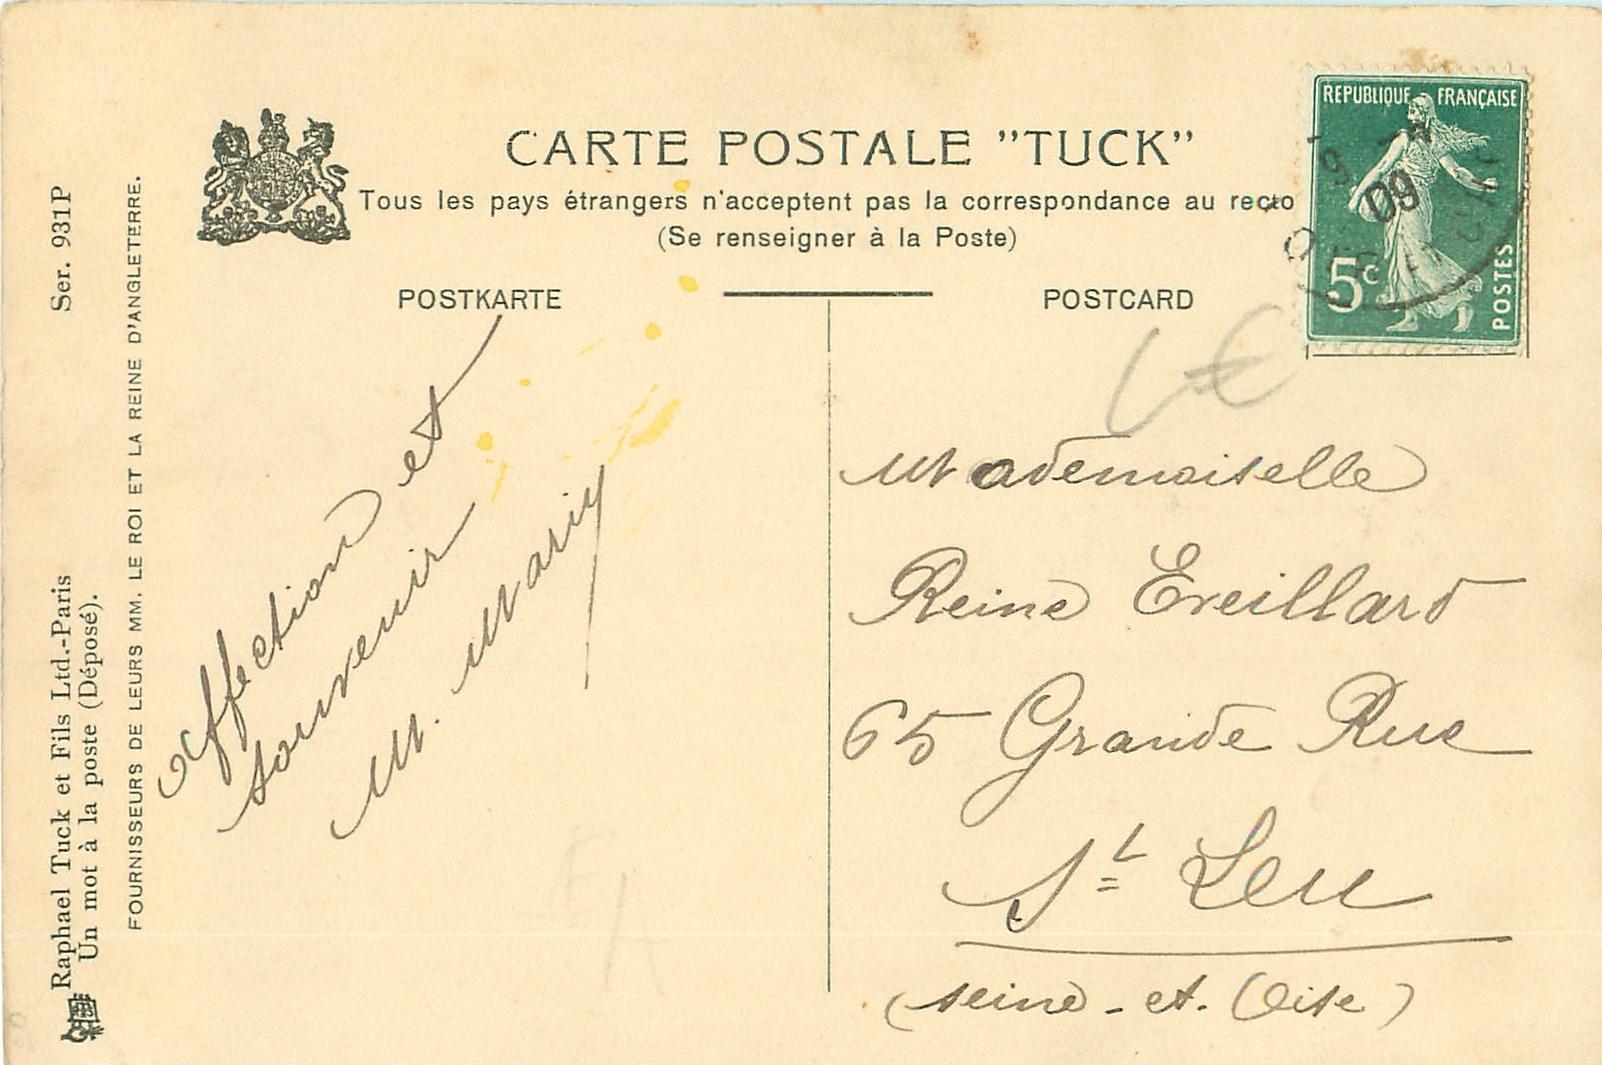 CARTE POSTALE "TUCK"
Tous les pays étrangers n'acceptent pas la correspondance au recto
(Se renseigner à la Poste)
POSTKARTE
POSTCARD
REPUBLIQUE FRANÇAISE
5c
POSTES
09
Ser. 931P
Raphael Tuck et Fils Ltd.-Paris
Un mot à la poste (Déposé).
FOURNISSEURS DE LEURS MM. LE ROI ET LA REINE D'ANGLETERRE.
affection et
souvenir
M. Mary
Mademoiselle
Reine Eveillard
65 Grande Rue
St Leu
(seine-et-Oise)